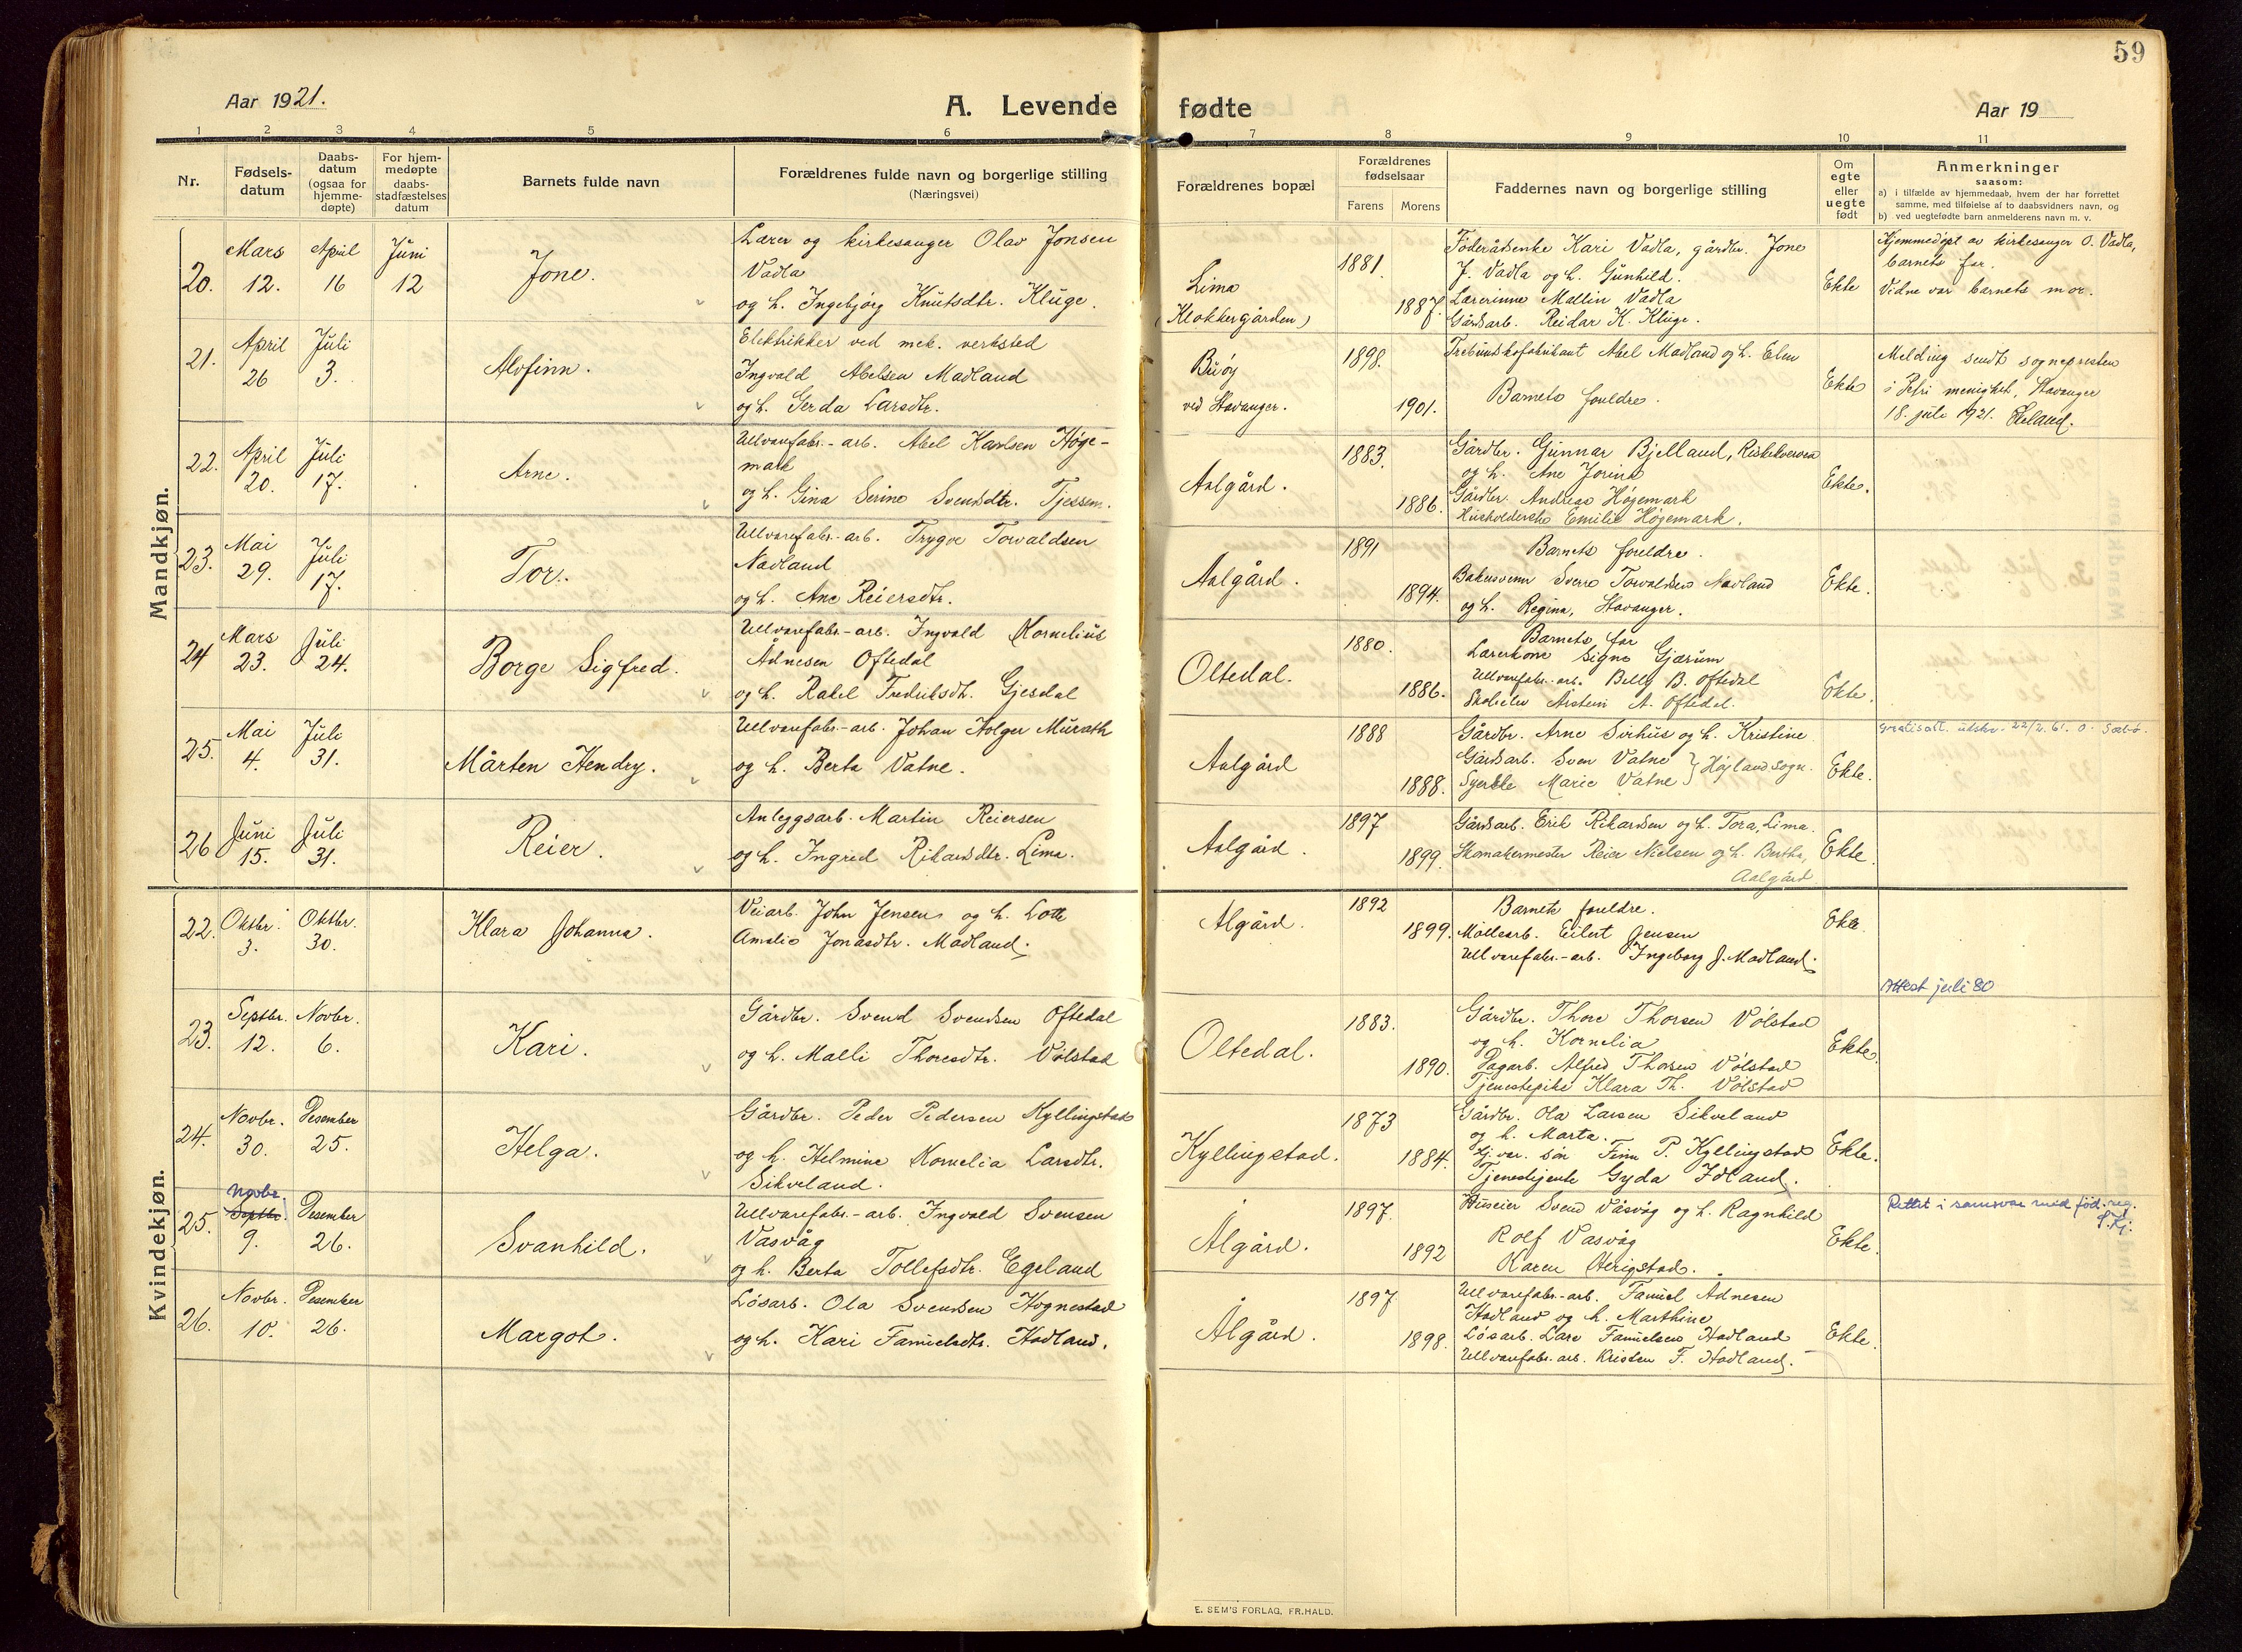 59
Aar 1921.
A. Levende fødte
Aar 19
1 2 3 4 5 6 7 8 9 10 11
Nr.
Fødsels-
datum
Daabs-
datum
(ogsaa for
hjemme-
døpte)
For hjem-
medøpte
daabs-
stadfæstelses
datum
Barnets fulde navn
Forældrenes fulde navn og borgerlige stilling
(Næringsvei)
Forældrenes bopæl
Forældrenes
fødselsaar
Farens Morens
Faddernes navn og borgerlige stilling
Om
egte
eller
uegte
født
Anmerkninger
saasom:
a) i tilfælde av hjemmedaab, hvem der har forrettet
samme, med tilføielse af to daabsvidners navn, og
b) ved uegtefødte barn anmelderens navn m. v.
Mandkjøn.
20.
Mars
12.
April
16
Juni
12
Jone.
Lærer og kirkesanger Olav Jonsen
Vadla
og h. Ingebjørg Knutsdtr. Kluge.
Lima
(Klokkergården)
1881.
1887.
Föderådsenke Kari Vadla, gårdbr. Jone
J. Vadla og h. Gunhild.
Lærerinne Mallin Vadla
Gårdsarb. Reidar K. Kluge.
Ekte
Hjemmedøpt av kirkesanger O. Vadla,
barnets far.
Vidne var barnets mor.
21.
April
26
Juli
3.
Alvfinn.
Elektrikker ved mek. verksted
Ingvald Abelsen Madland
og h. Gerda Larsdtr.
Buøy
ved Stavanger.
1898.
1901.
Abel Madland og h. Elen
Barnets foreldre.
Ekte
Melding sendt sognepresten
i Petri menighet, Stavanger
18. juli 1921.
22.
April
20.
Juli
17.
Arne.
Ullvarefabr.-arb. Abel Karlsen Høge-
mark
og h. Gina Serine Svendsdtr. Tjessem.
Aalgård.
1883.
1886.
Gårdbr. Gunnar Bjelland,
og h. Ane Jorine
Gårdbr. Andreas Høgemark
Husholderske Emilie Høgemark.
Ekte.
23.
Mai
29.
Juli
17.
Tor.
Ullvarefabr.-arb. Trygve Torvaldsen
Nadland
og h. Ane Reiersdtr.
Aalgård.
1891
1894.
Barnets foreldre.
Bakersvenn Sverre Torvaldsen Nadland
og h. Regina, Stavanger.
Ekte.
24
Mars
23.
Juli
24.
Borge Sigfred.
Ullvarefabr.-arb. Ingvald Kornelius
Ådnesen Oftedal
og h. Rakel Fredriksdtr. Gjesdal
Oltedal.
1880.
1886.
Barnets far
Lærerkone Signe Gjærum
Ullvarefabr.-arb. Belly B. Oftedal
Skoleelev Årstein A. Oftedal.
Ekte.
25.
Mai
4.
Juli
31.
Mårten Hendry.
Ullvarefabr.-arb. Johan Holger Murath
og h. Berta Vatne.
Aalgård
1888
1888.
Gårdbr. Arne Sirhus og h. Kristine
Gårdsarb. Sven Vatne
Syerske Marie Vatne } Høyland sogn.
Ekte.
Gratisatt. utskr. 22/2. 61. O. Sæbø.
26
Juni
15.
Juli
31.
Reier.
Anleggsarb. Martin Reiersen
og h. Ingrid Rikardsdtr. Lima.
Aalgård.
1897
1899.
Gårdsarb. Erik Rikardsen og h. Tora, Lima.
Skomakermester Reier Nielsen og h. Bertha,
Aalgård
Ekte.
Kvindekjøn.
22.
Oktbr.
3.
Oktbr.
30.
Klara Johanna.
Veiarb. John Jensen og h. Lotte
Amalie Jonasdtr. Madland.
Algård.
1892
1899.
Barnets foreldre.
Møllearb. Eilert Jensen
Ullvarefabr.-arb. Ingeborg J. Madland.
Ekte.
Attest juli 80
23.
Septbr.
12.
Novbr.
6.
Kari.
Gårdbr. Svend Svendsen Oftedal
og h. Malli Thoresdtr. Vølstad
Oltedal.
1883.
1890.
Gårdbr. Thore Thorsen Vølstad
og h. Kornelia
Dagarb. Alfred Thorsen Vølstad
Tjenestepike Klara Th. Vølstad
Ekte.
24.
Novbr.
30.
Desember
25.
Helga.
Gårdbr. Peder Pedersen Kyllingstad
og h. Helmine Kornelia Larsdtr.
Sikveland.
Kyllingstad.
1873
1884.
Gårdbr. Ola Larsen Sikveland
og h. Marta.
Hj. vær. søn Finn P. Kyllingstad
Tjenestejente Gyda Idland.
Ekte.
25.
Novbr.
Septbr.
9.
Desember
26.
Svanhild.
Ullvarefabr.-arb. Ingvald Svensen
Vasvåg
og h. Berta Tollefsdtr. Egeland
Ålgård.
1897.
1892
Huseier Svend Våsvåg og h. Ragnhild
Rolf Vasvåg
Karen Herigstad.
Ekte.
Rettet i samsvar med fød. reg.
26.
Novbr.
10.
Desember
26.
Margot.
Løsarb. Ola Svendsen Hognestad
og h. Kari Famuelsdtr. Hadland.
Ålgård.
1897
1898.
Ullvarefabr.-arb. Famuel Adnesen
Hadland og h. Marthine
Løsarb. Lars Famuelsen Hadland
Ullvarefabr.arb. Kristen F. Hadland.
Ekte.
E. SEM'S FORLAG, FR.HALD.